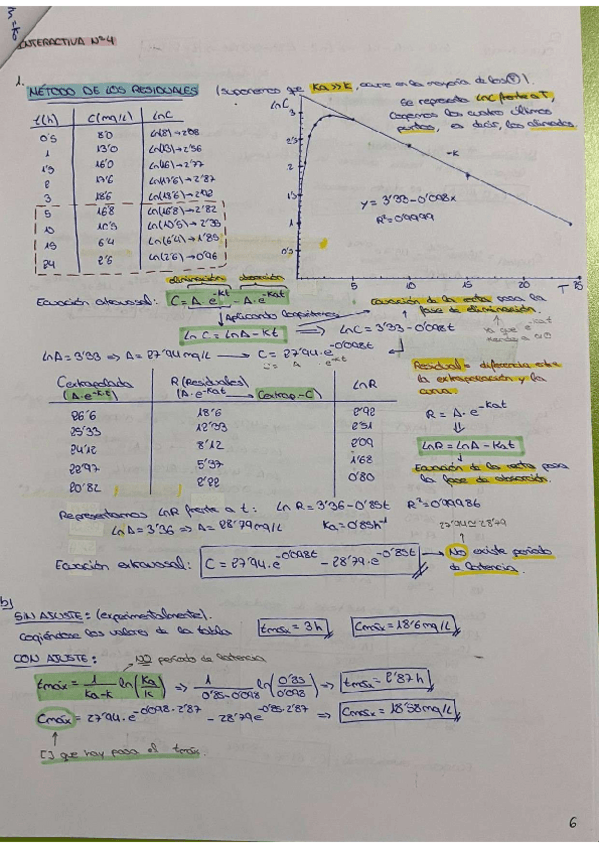 INTERACTIVA Nº4
1.
MÉTODO DE LOS RESIDUALES (suponemos que Ka>>K, ocurre en la mayoría de los).
Se representa LnC frente a T,
cogemos los cuatro últimos
puntos, es decir, los alineados.
t(h) C(mg/L) LnC
0'5 8'0 Ln(8)→2'08
1 13'0 Ln(13)→2'56
1'5 16'0 Ln(16)→2'77
2 17'6 Ln(17'6)→2'87
3 18'6 Ln(18'6)→2'92
5 16'8 Ln(16'8)→2'82
10 10'5 Ln(10'5)→2'35
15 6'4 Ln(6'4)→1'85
24 2'6 Ln(2'6)→0'96
LnC
3
2'5
2
1'5
1
0'5
-K
y = 3'33-0'098x
R²=0'9999
5 10 15 20 T 25
eliminación absorción
Ecuación extravasal: C=A·e^-Kt - A·e^-Kat
Aplicando logaritmos
Ln C = LnA - Kt ⟹ LnC = 3'33-0'098t
ecuación de la recta para la
fase de eliminación.
ya que e^-Kat
tiende a 0
LnA = 3'33 ⇒ A = 27'94 mg/L → C = 27'94·e^-0'098t
Residual = diferencia entre
la extrapolación y la
curva.
Cextrapolada (A·e^-Kt) R (Residuales) (A·e^-Kat → Cextrap.-C) LnR
26'6 18'6 2'92
25'33 12'33 2'51
24'12 8'12 2'09
22'97 5'37 1'68
20'82 2'22 0'80
R = A·e^-Kat
LnR = LnA - Kat
Ecuación de la recta para
la fase de absorción.
Representamos LnR frente a t: Ln R = 3'36-0'85t R²=0'99986
LnA = 3'36 ⇒ A = 28'79 mg/L Ka = 0'85h⁻¹
27'94≃28'79
Ecuación extravasal: C = 27'94·e^-0'098t - 28'79·e^-0'85t → No existe período
de latencia.
b)
SIN AJUSTE: (experimentalmente).
Cogiéndose los valores de la tabla tmáx = 3h Cmáx = 18'6 mg/L
CON AJUSTE: NO período de latencia
tmáx = 1/Ka-K ln(Ka/K) ⇒ 1/0'85-0'098 ln(0'85/0'098) ⇒ tmáx = 2'87h
Cmáx = 27'94·e^-0'098·2'87 - 28'79e^-0'85·2'87 ⇒ Cmáx = 18'58mg/L
[] que hay para el tmáx.
6